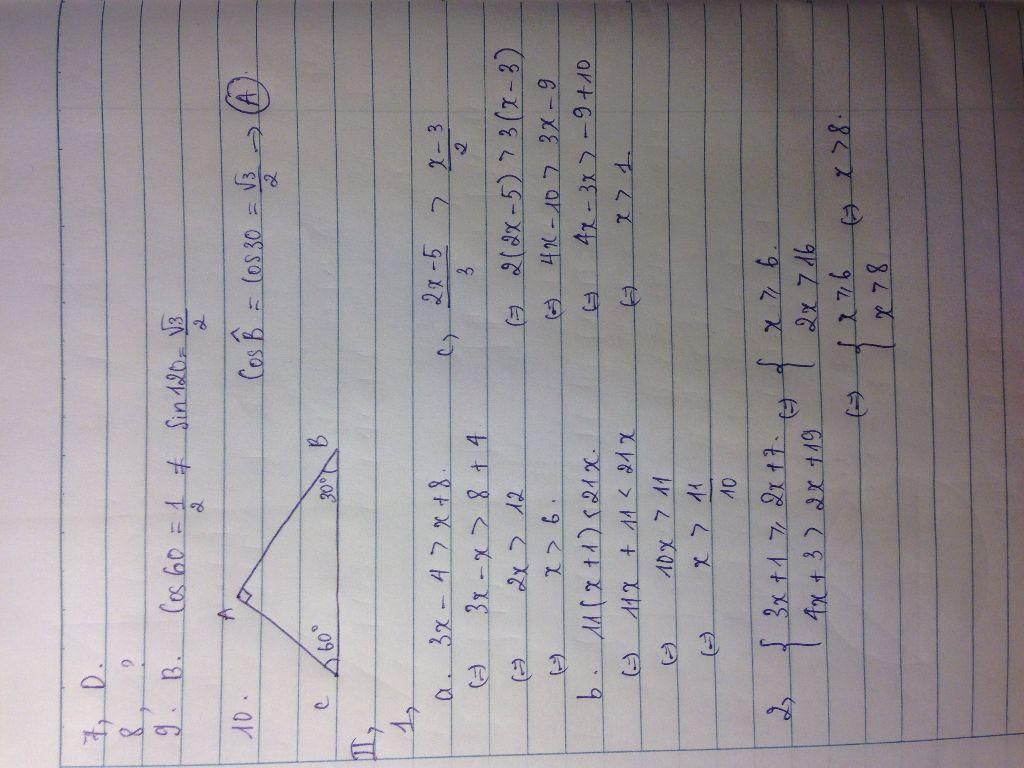 7, D.
8, ?
9. B. Cos60 = 1/2 ≠ sin120 = √3/2
10. A
C 60° 30° B
Cos B̂ = Cos30 = √3/2 → (A).
II,
1,
a. 3x - 4 > x + 8.
(=) 3x - x > 8 + 4
(=) 2x > 12
(=) x > 6.
b. 11(x+1) < 21x.
(=) 11x + 11 < 21x
(=) 10x > 11
(=) x > 11/10
c, (2x-5)/3 > (x-3)/2
(=) 2(2x-5) > 3(x-3)
(=) 4x - 10 > 3x - 9
(=) 4x - 3x > -9 + 10
(=) x > 1
2, { 3x + 1 ⩾ 2x + 7. (=) { x ⩾ 6.
4x + 3 > 2x + 19 2x > 16
(=) { x ⩾ 6 (=) x > 8.
x > 8